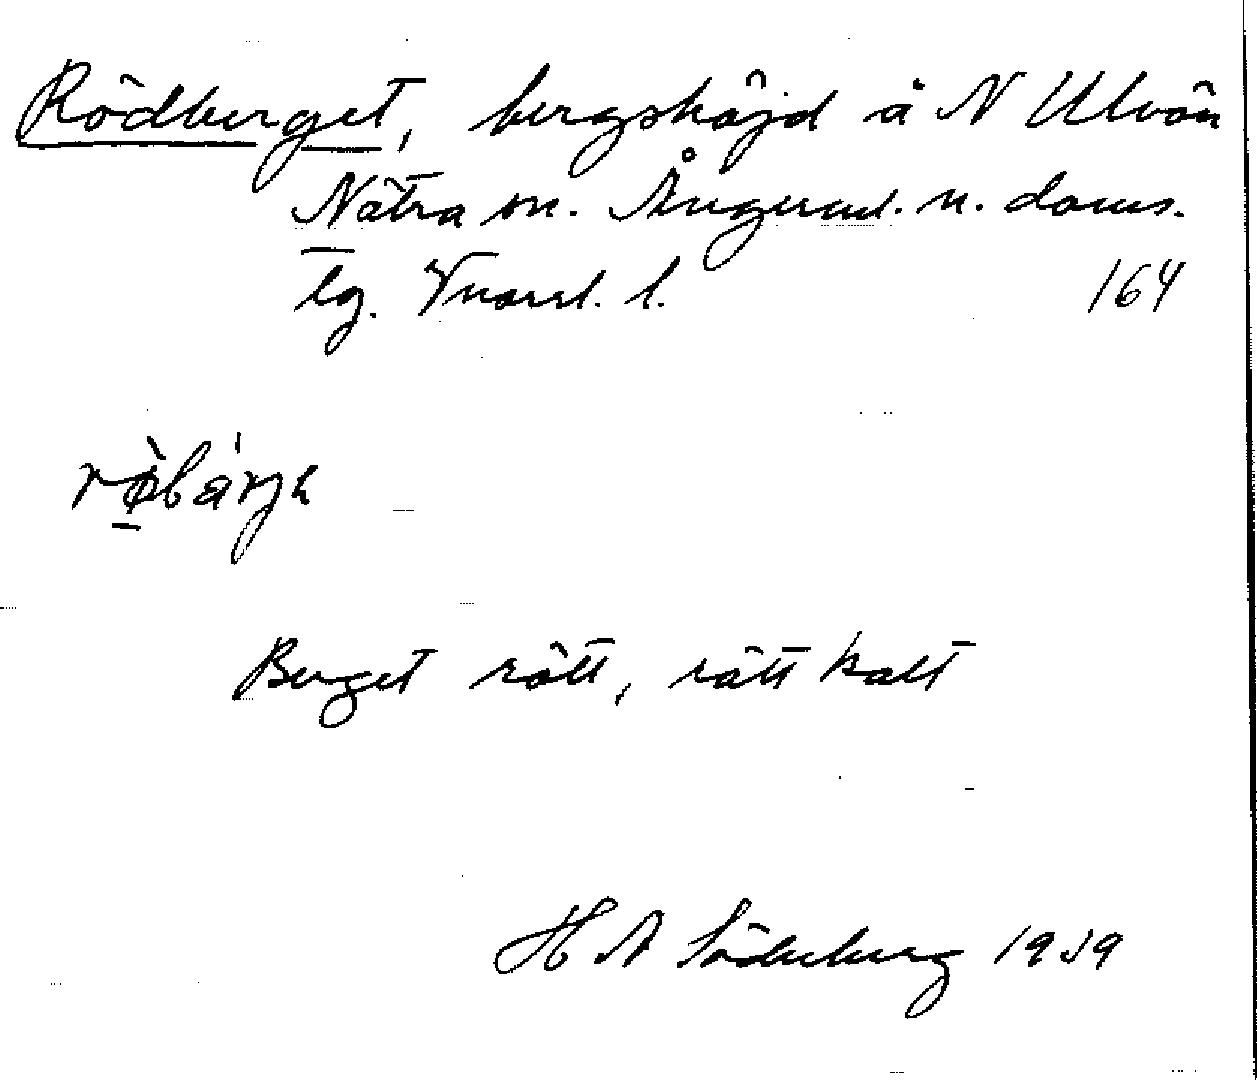 Rödberget, bergshöjd å N Ulvön
Nätra sn. Ångerml. n. doms.
lg. Vnorrl. l. 164
Berget rött, rätt kalt
H A Söderberg 1939